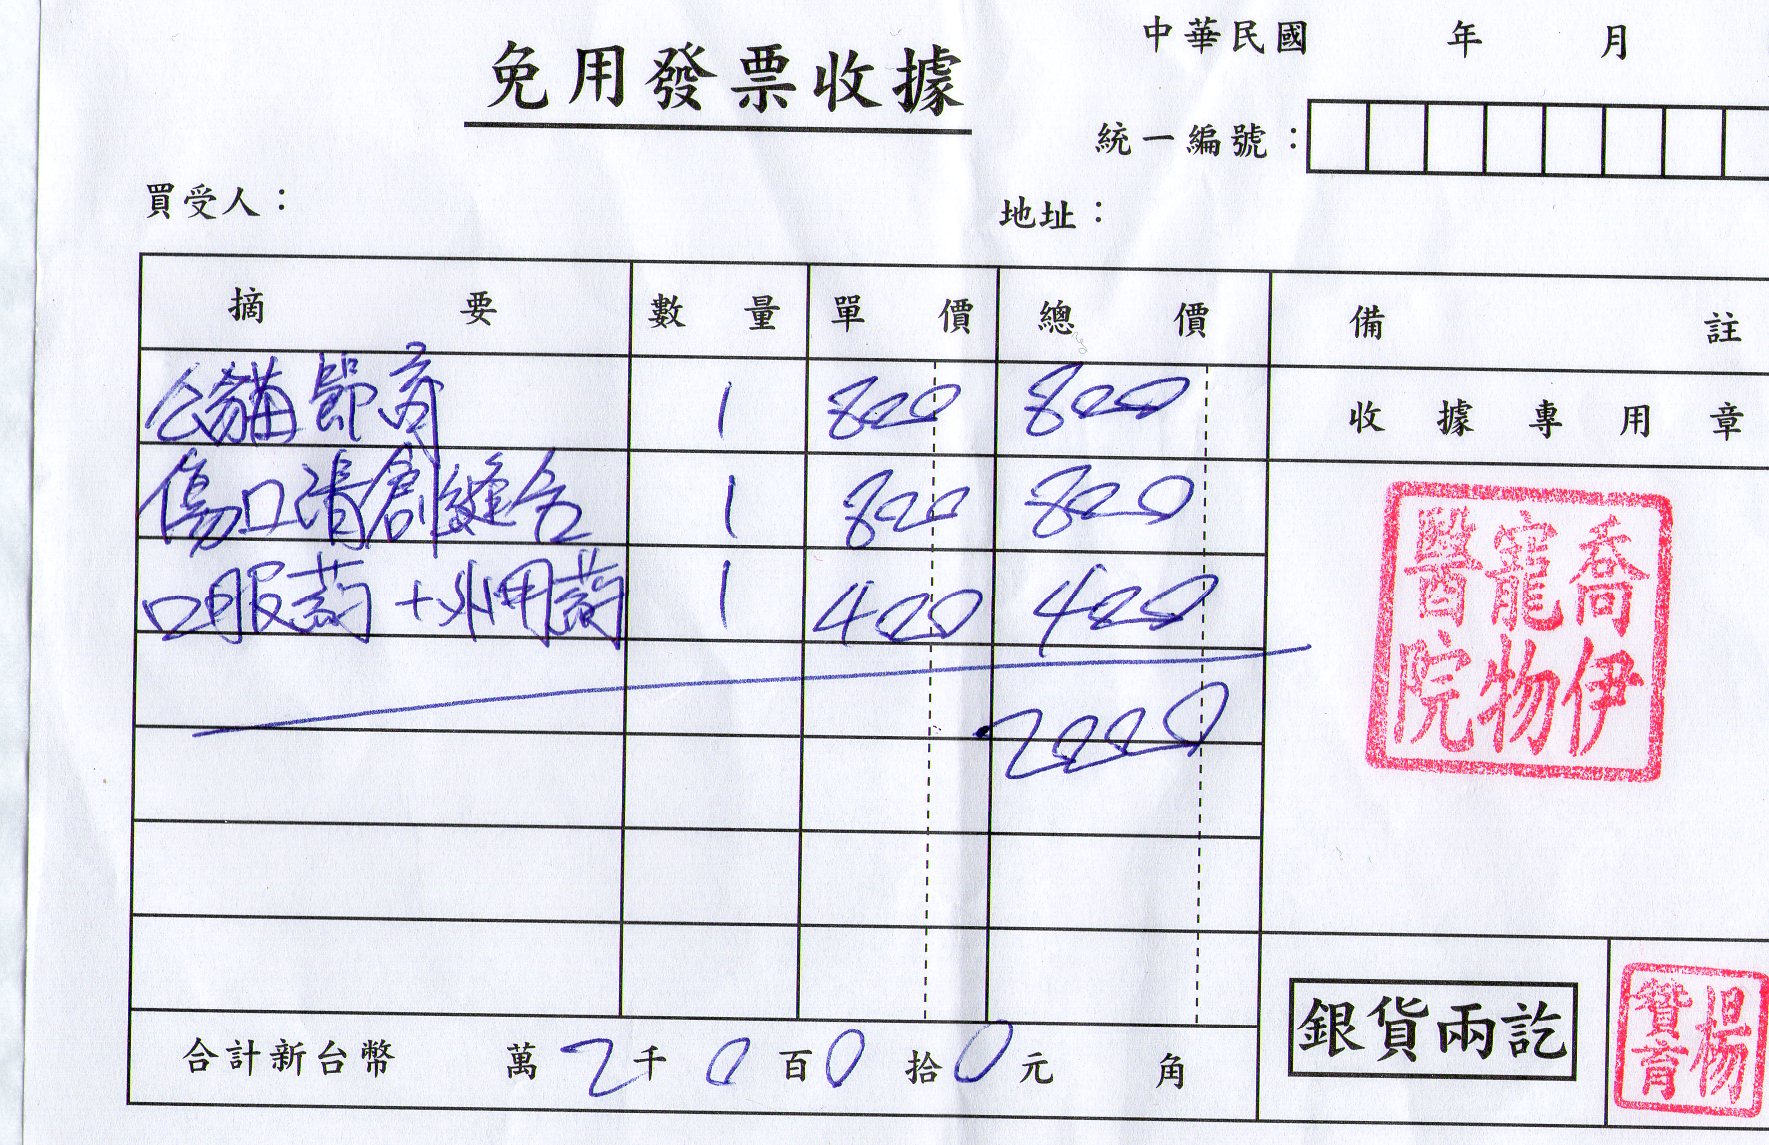 中華民國 年 月
免用發票收據
統一編號：
買受人：
地址：
摘要 數量 單價 總價 備註
公貓節育 1 800 800
收據專用章
傷口清創縫合 1 800 800
口服葯+外用葯 1 400 400
2000
喬伊
寵物
醫院
合計新台幣 萬 2 千 0 百 0 拾 0 元 角
銀貨兩訖
楊
寶育